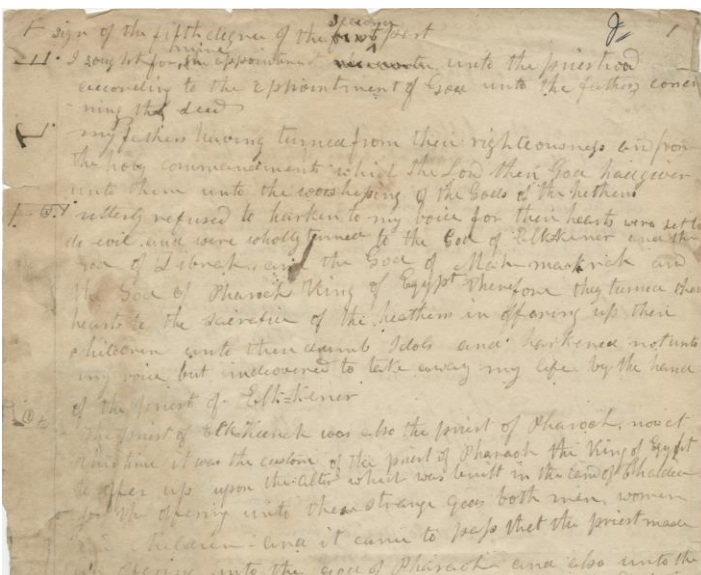 sign of the fifth degree of the first second part
I sought for mine the appointment unto the priesthood
according to the appointment of God unto the fathers concer
ning the seed
my fathers having turned from their righteousness and from
the holy commandments which the Lord their God had given
unto them unto the worshiping of the Gods of the hethens
utterly refused to harken to my voice for their hearts were set to
do evil and were wholly turned to the God of Elkkener and the
God of Libnah and the God of Mahmackrah and
the God of Pharaoh King of Egypt Therefore they turned their
hearts to the sacrafice of the heathens in offering up their
children unto their dumb Idols and harkened not unto
my voice but indeovered to take away my life by the hand
of the priest of Elk=kener
The priest of Elkkener was also the priest of Pharaoh, now at
this time it was the custom of the priest of Pharaoh the King of Egypt
to offer up upon the alter which was built in the land of Chaldea
for the offering unto these strange gods both men, women
and children and it came to pass that the priest made
an offering unto the god of Pharaoh and also unto the